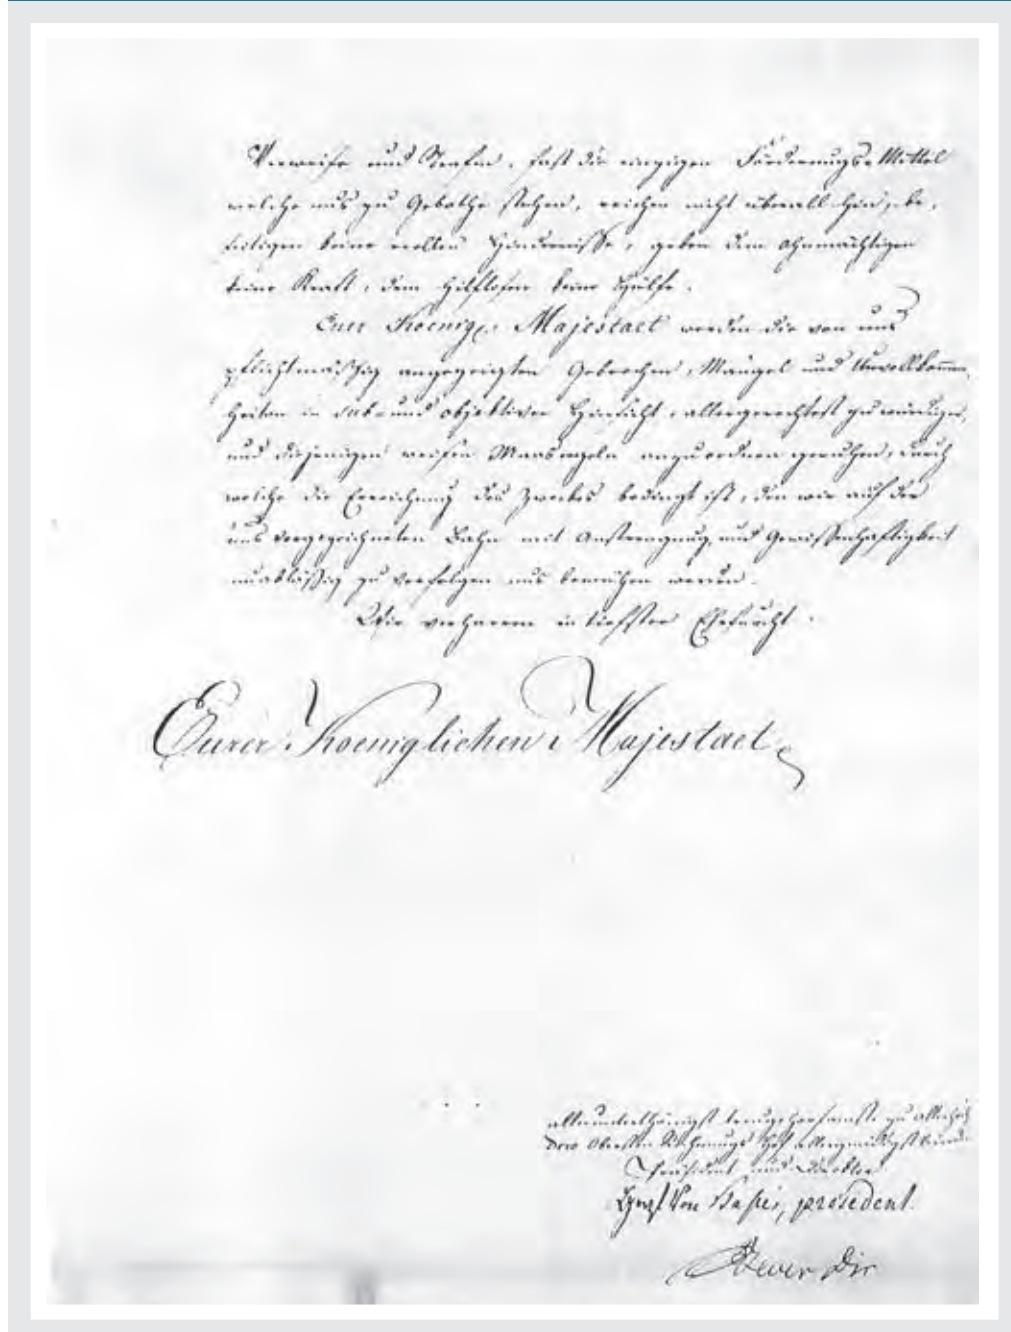 Verweise und Strafen, fast die einzigen Förderungs-Mittel
welche uns zu Gebothe stehen, reichen nicht überall hin, be-
seitigen keine reellen Hindernisse, geben dem ohnmächtigen
keine Kraft, dem Hilflosen keine Hülfe.
Eure Koenigl. Majestaet werden die von uns
pflichtmäßig angezeigten Gebrechen, Mängel und Unvollkommen
heiten in sub- und objektiver Hinsicht, allergerechtest zu würdigen,
und diejenigen weisen Maasregeln anzuordnen geruhen, durch
welche die Erreichung des Zweckes bedingt ist, den wir auf der
uns vorgezeichneten Bahn mit Anstrengung und Gewissenhaftigkeit
unabläßig zu verfolgen uns bemühen werden.
Wir verharren in tiefster Ehrfurcht.
Eurer Koeniglichen Majestaet
allerunterthänigst treugehorsamste zu Allerhöch
Dero Obersten Rechnungs Hof allergnädigst
Präsident und Direktor
Graf von president.
Dir